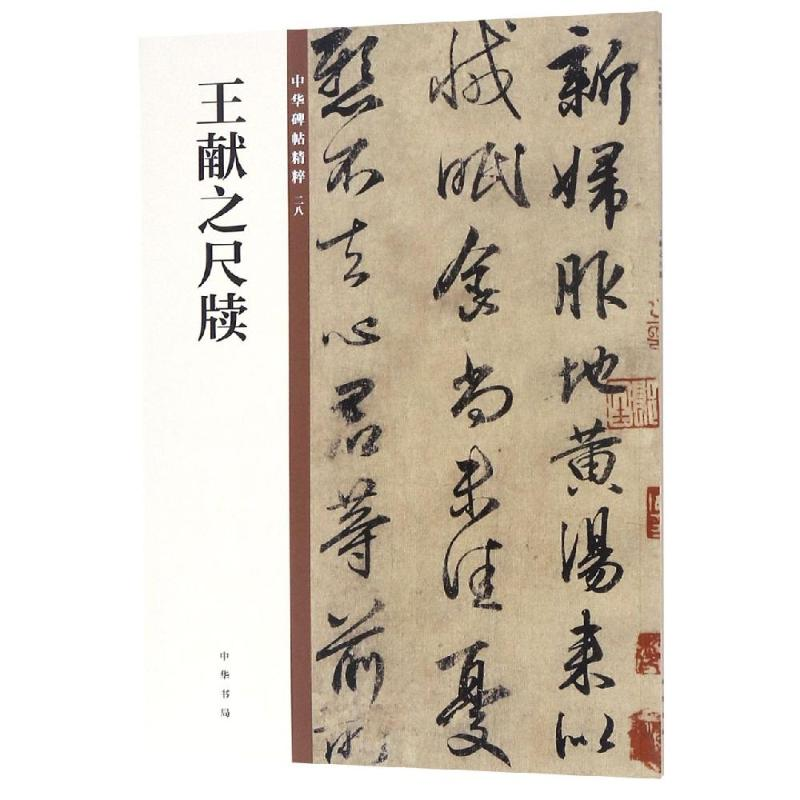 王献之尺牍
中华碑帖精粹 二八
中华书局
新婦服地黄湯来似
减眠食尚未佳憂
懸不去心君等前所